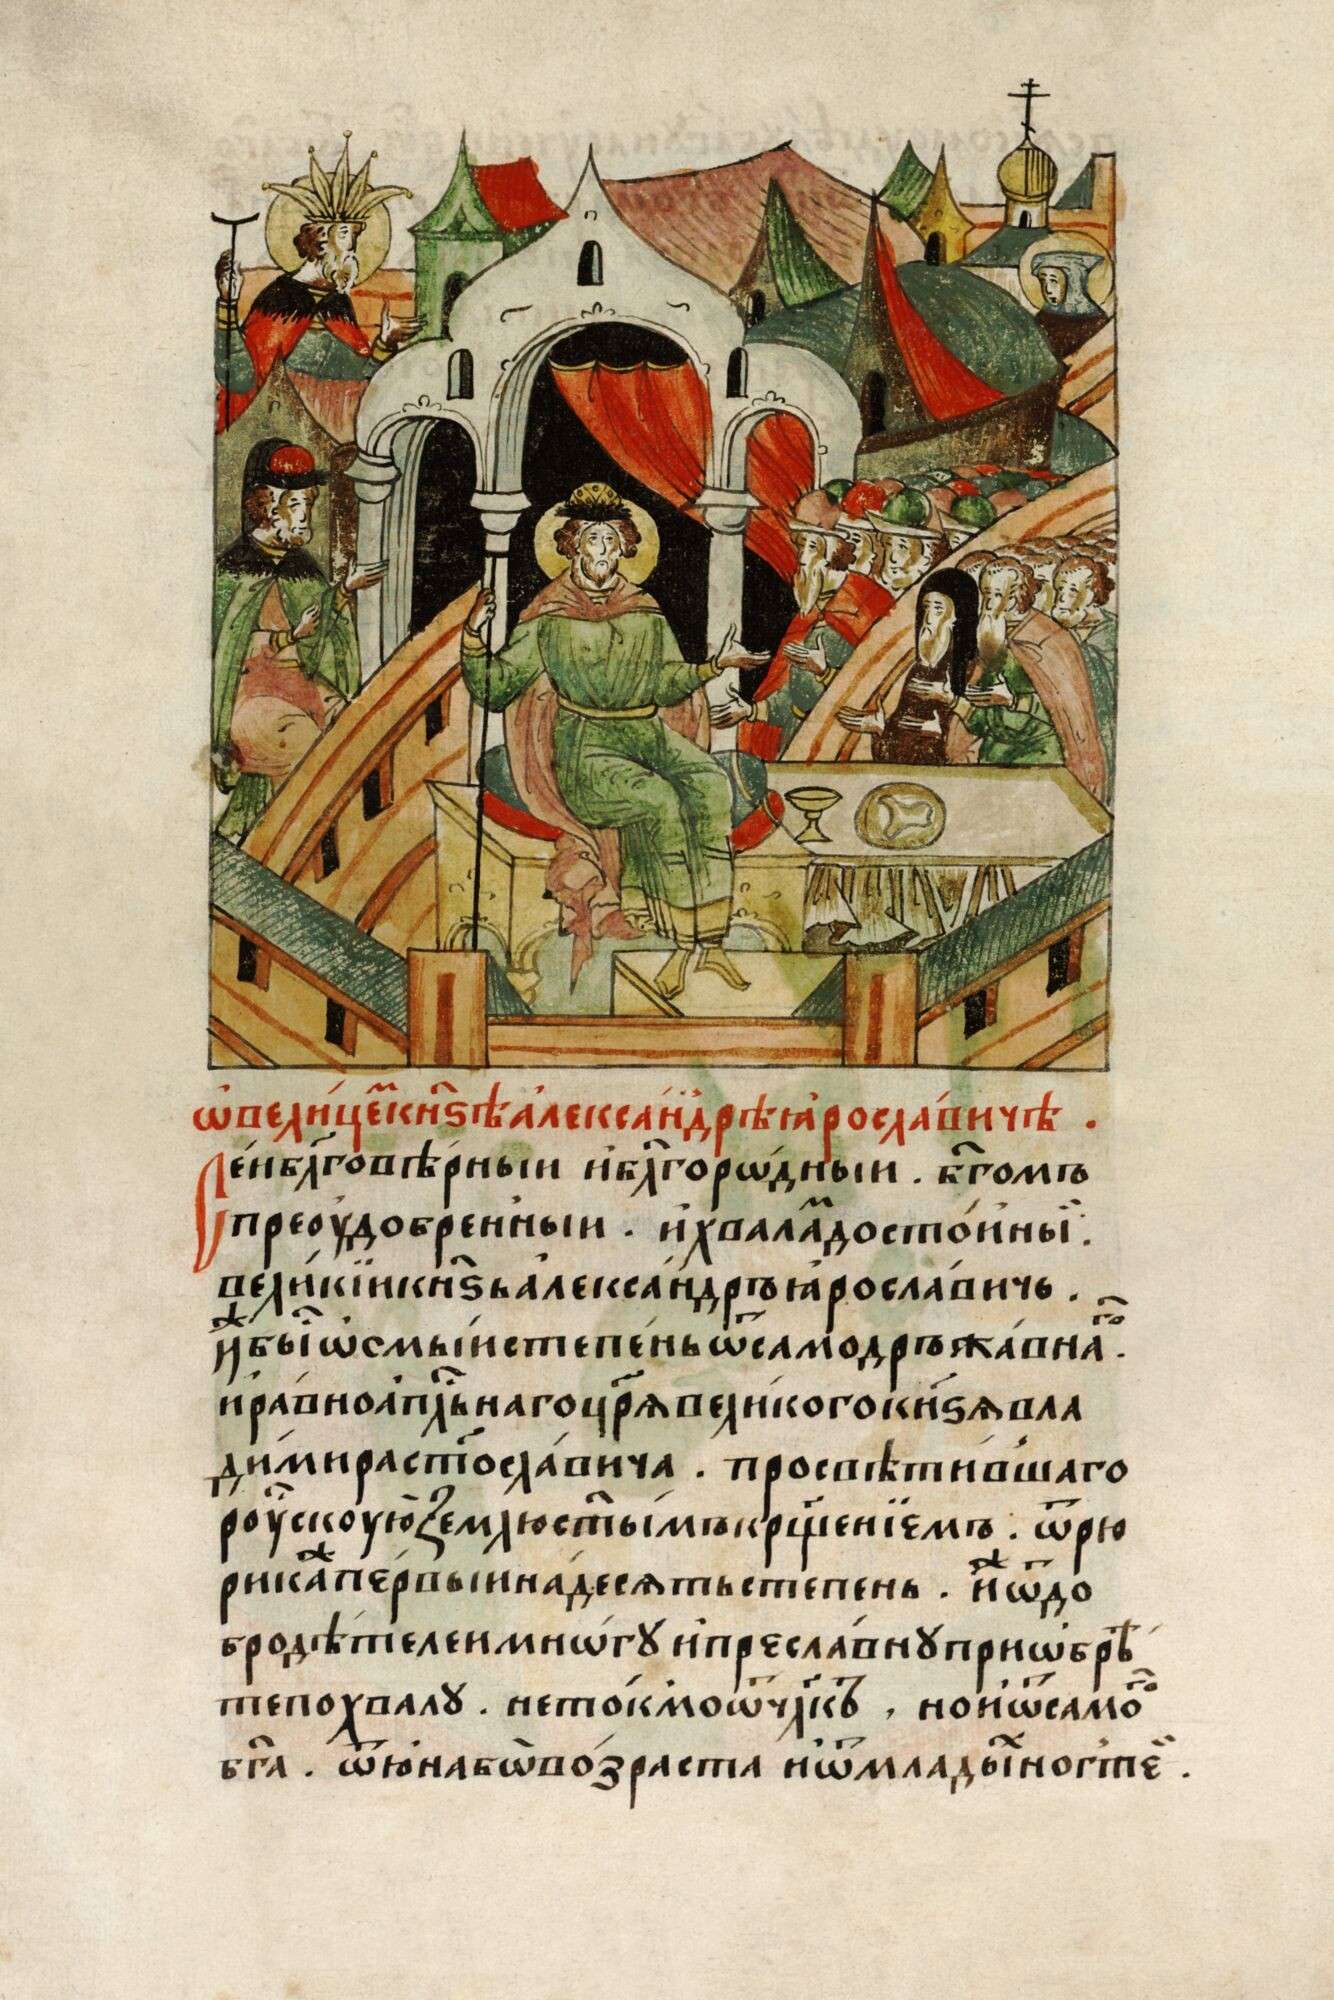 ѡ҆ вели́цем кн҃ѕѣ а҆леѯа́ндрѣ ꙗ҆росла́вичѣ .
Се́и бл҃говѣ́рныи и҆ бл҃горѡ́дныи . бг҃омъ
преоу҆добре́нныи . и҆ хвала́м досто́иныи .
вели́кїи кн҃ѕь а҆лекса́ндръ ꙗ҆росла́вичь .
и҆ж бы́ ѡ҆смы́и степе́нь ѿ самодръжа́внаг .
и҆ ра́вноа҆пⷭ҇льнаго цр҃ѧ вели́кого кн҃ѕѧ вла
ди́мира ст҃осла́вича . просвѣти́вшаго
роу́скоую зе́млю ст҃ы́мъ кр҃ще́нїемъ . ѿ рю
рика́ж пе́рвыи надесѧть степень . и҆ж ѿ до
бродѣ́телеи мнѡ́гу и҆ пресла́вну приѡбрѣ́
те похвалу . не то́кмо ѿ чл҃къ , но и҆ ѿ самог
бг҃а . ѿ ю҆на бѡ во́зраста и҆ ѿ млады́х ногте́и .